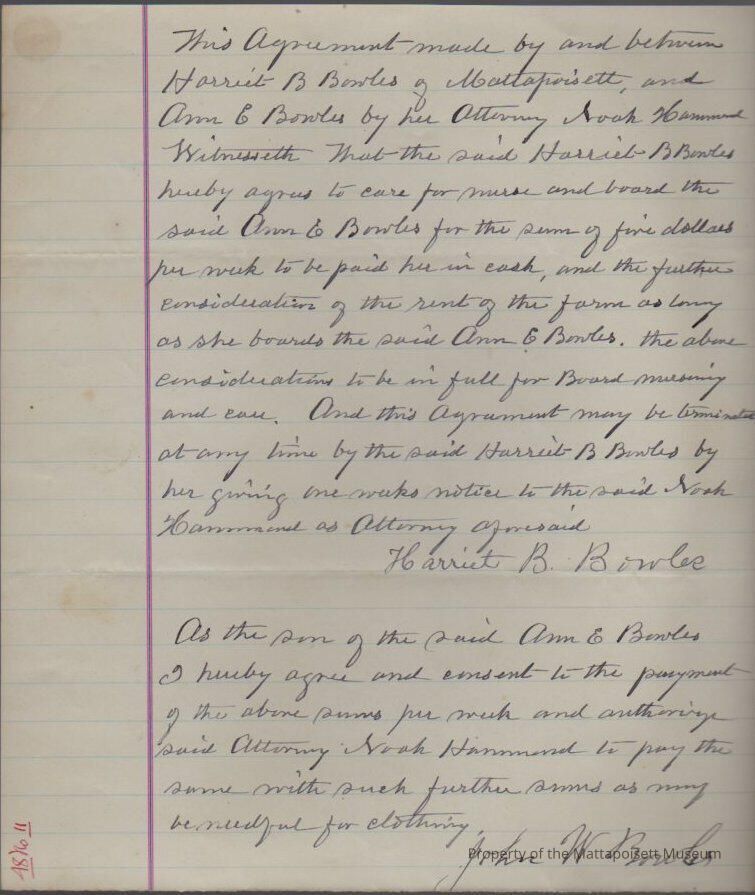 This Agreement made by and between
Harriet B Bowles of Mattapoisett, and
Ann E Bowles by her Attorney Noah Hammond
Witnesseth That the said Harriet B Bowles
hereby agrees to care for nurse and board the
said Ann E Bowles for the sum of five dollars
per week to be paid her in cash, and the further
consideration of the rent of the farm as long
as she boards the said Ann E Bowles. the above
considerations to be in full for Board nursing
and care. And this Agreement may be terminated
at any time by the said Harriet B Bowles by
her giving one weeks notice to the said Noah
Hammond as Attorney aforesaid
Harriet B. Bowles
As the son of the said Ann E Bowles
I hereby agree and consent to the payment
of the above sums per week and authorize
said Attorney Noah Hammond to pay the
same with such further sums as may
be needful for clothing
John W Bowles
Property of the Mattapoisett Museum